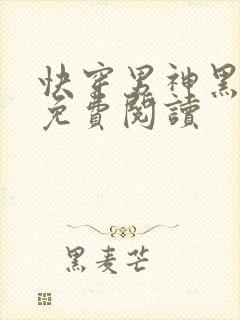 快穿男神黑
免費閱讀
黑麦芒